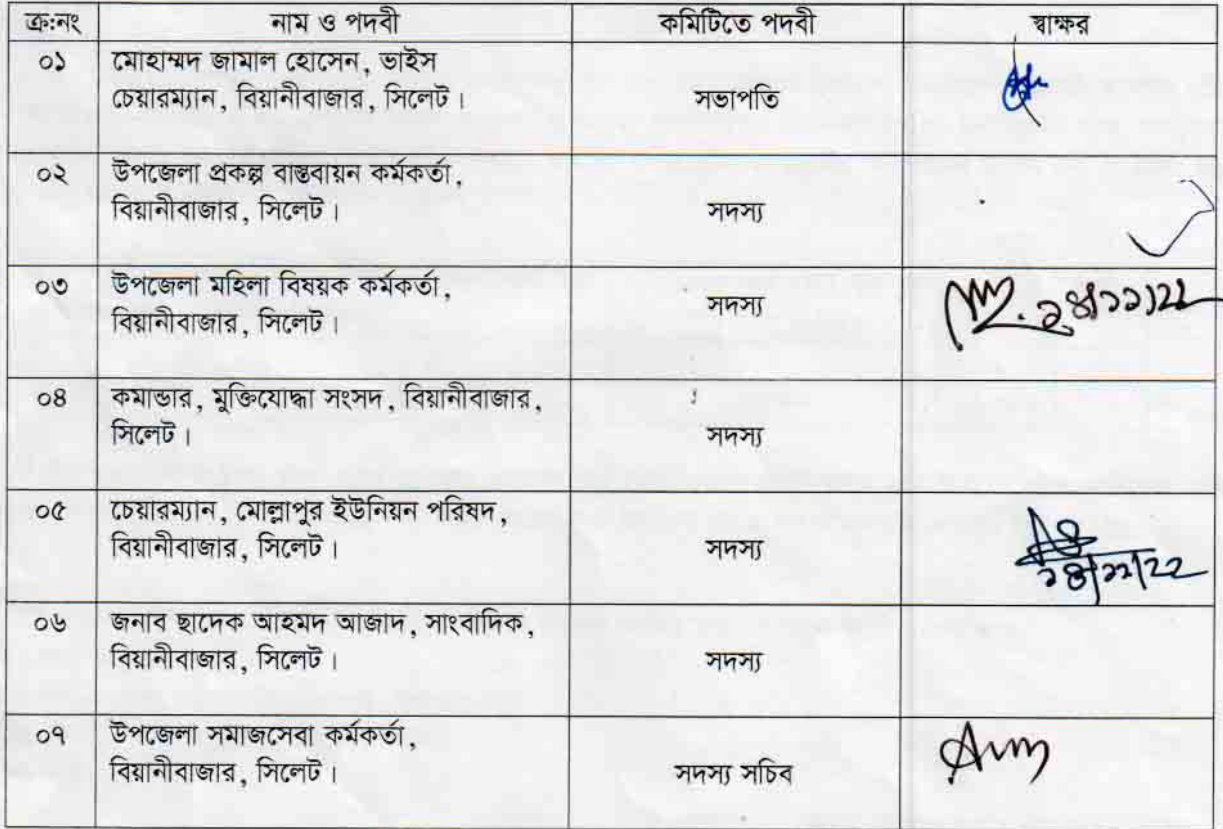 ক্র:নং নাম ও পদবী কমিটিতে পদবী স্বাক্ষর
০১ মোহাম্মদ জামাল হোসেন, ভাইস
চেয়ারম্যান, বিয়ানীবাজার, সিলেট। সভাপতি
০২ উপজেলা প্রকল্প বাস্তবায়ন কর্মকর্তা,
বিয়ানীবাজার, সিলেট। সদস্য
০৩ উপজেলা মহিলা বিষয়ক কর্মকর্তা,
বিয়ানীবাজার, সিলেট। সদস্য
০৪ কমান্ডার, মুক্তিযোদ্ধা সংসদ, বিয়ানীবাজার,
সিলেট। সদস্য
০৫ চেয়ারম্যান, মোল্লাপুর ইউনিয়ন পরিষদ,
বিয়ানীবাজার, সিলেট। সদস্য
০৬ জনাব ছাদেক আহমদ আজাদ, সাংবাদিক,
বিয়ানীবাজার, সিলেট। সদস্য
০৭ উপজেলা সমাজসেবা কর্মকর্তা,
বিয়ানীবাজার, সিলেট। সদস্য সচিব